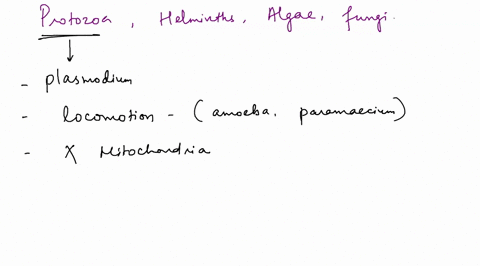 Protozoa, Helminths, Algae, fungi.
- plasmodium
- locomotion - (amoeba, paramaecium)
- X Mitochondria